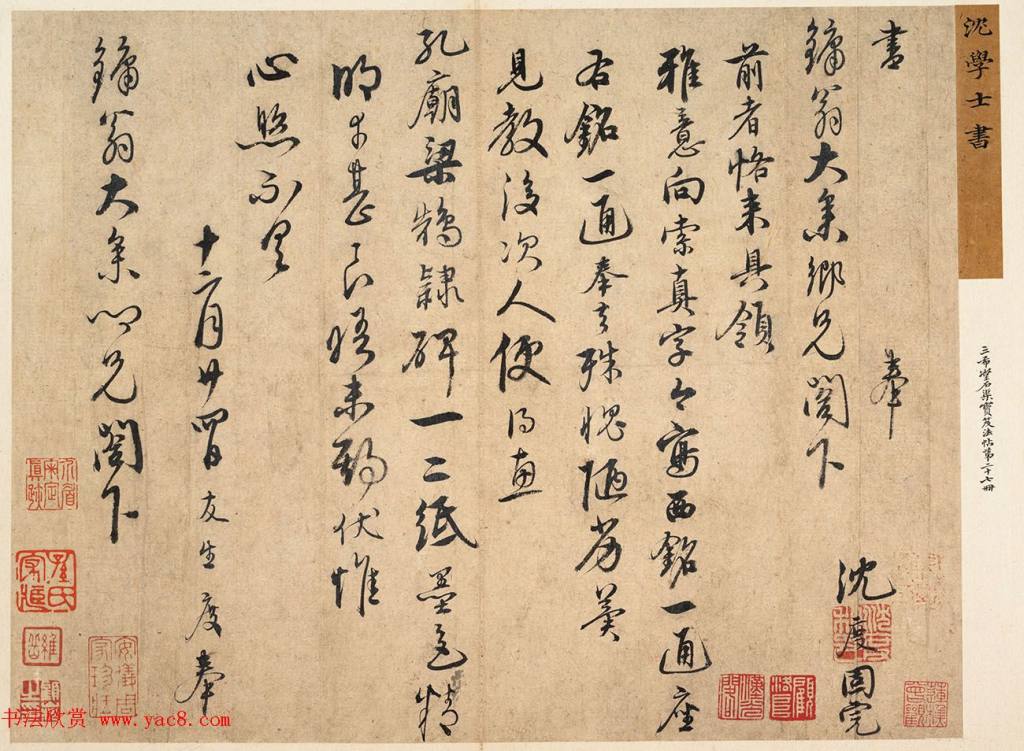 沈學士書
三希堂石渠寶笈法帖第二十七冊
書奉
沈度固完
鏞翁大參鄉兄閣下
前者恪來具領
雅意向索真字今寫西銘一通座
右銘一通奉去殊愧陋劣冀
見教後次人便得惠
孔廟梁鵠隸碑一二紙墨色精
明幸甚良晤未期伏惟
心照不具
十二月廿四日友生度奉
鏞翁大參鄉兄閣下
安儀周家珍藏
书法欣赏 www.yac8.com